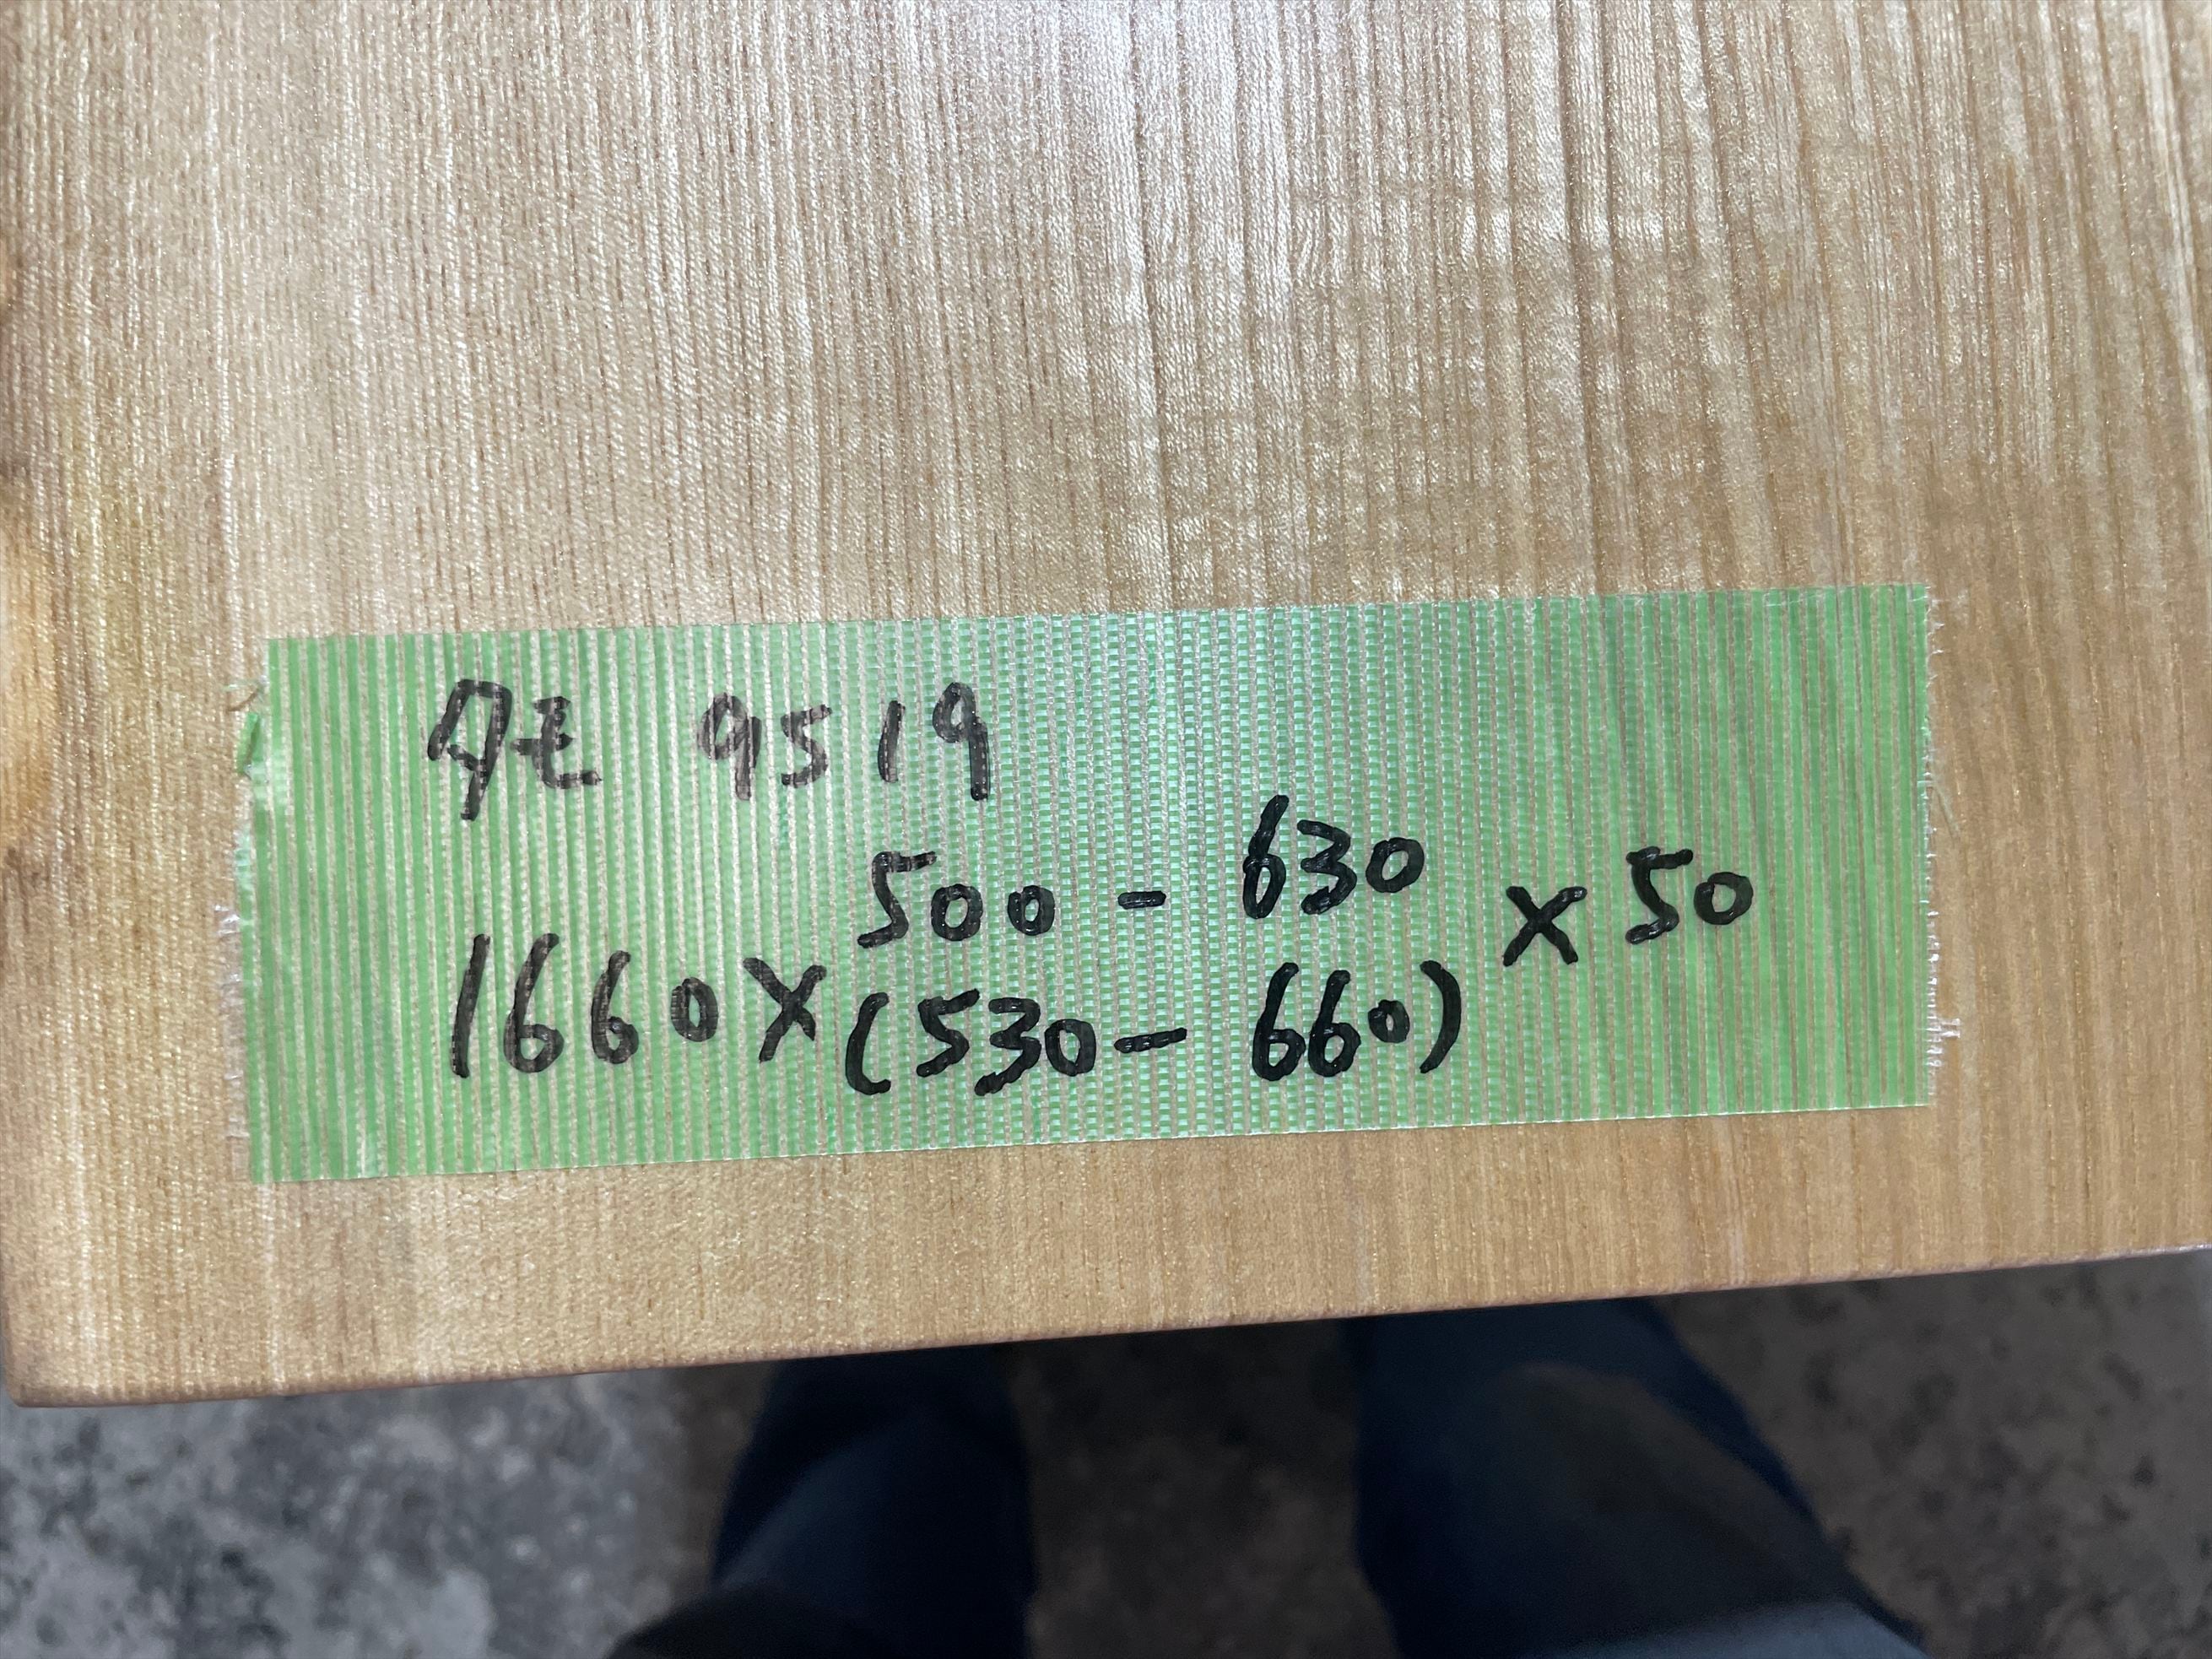 タモ 9519
500 - 630
1660×(530- 660) ×50